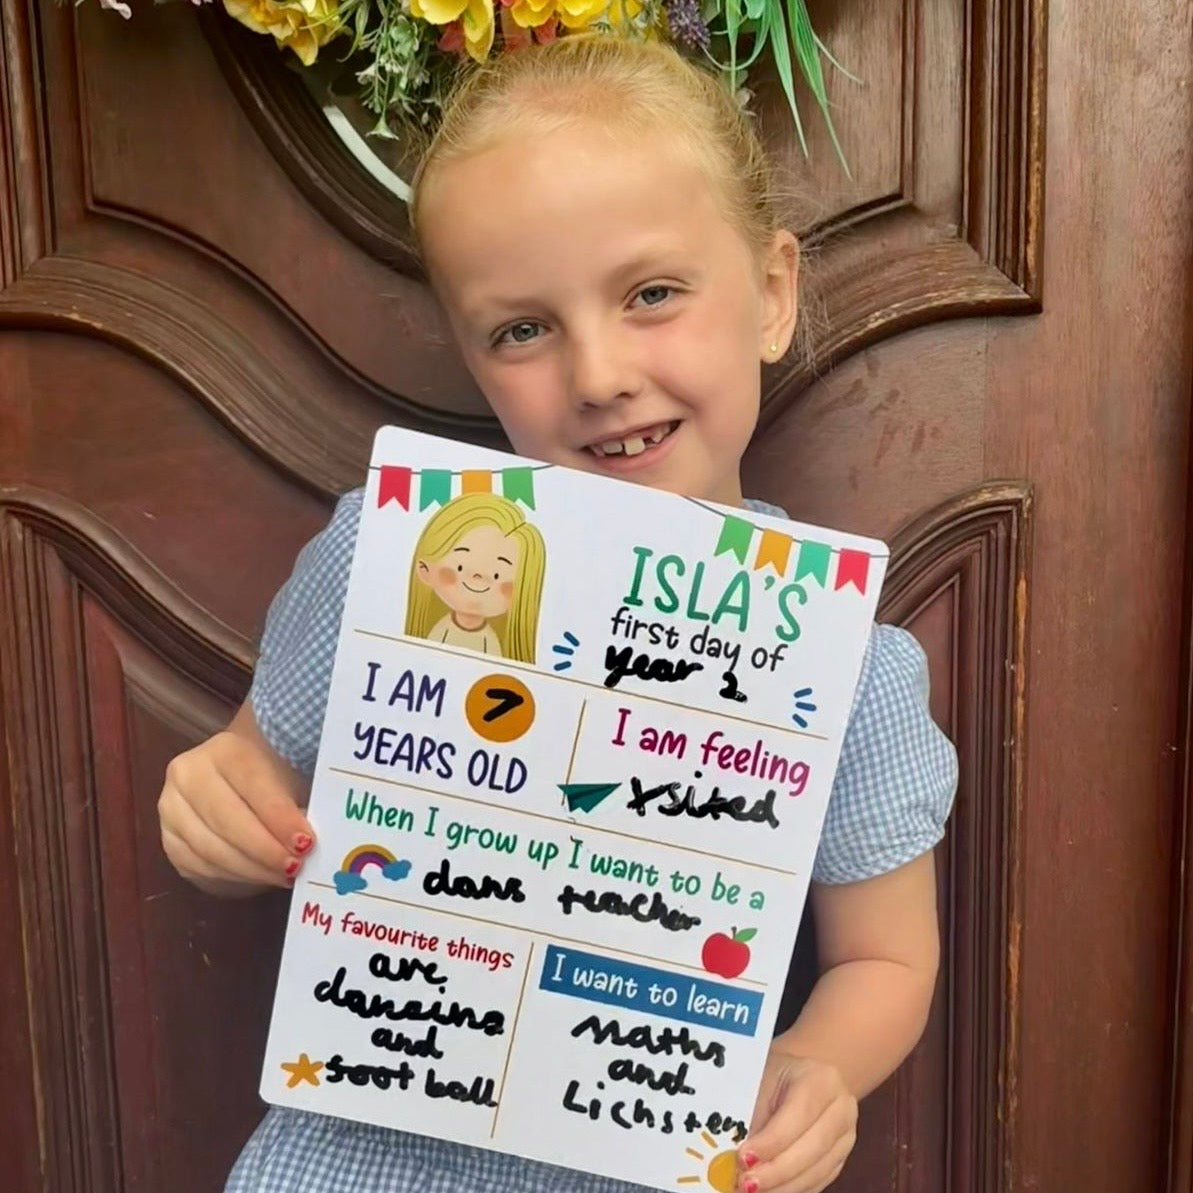 ISLA'S
first day of
year 2
I AM 7
YEARS OLD
I am feeling
xsited
When I grow up I want to be a
dans teacher
My favourite things
are
dansing
and
foot ball
I want to learn
maths
and
Lichsters